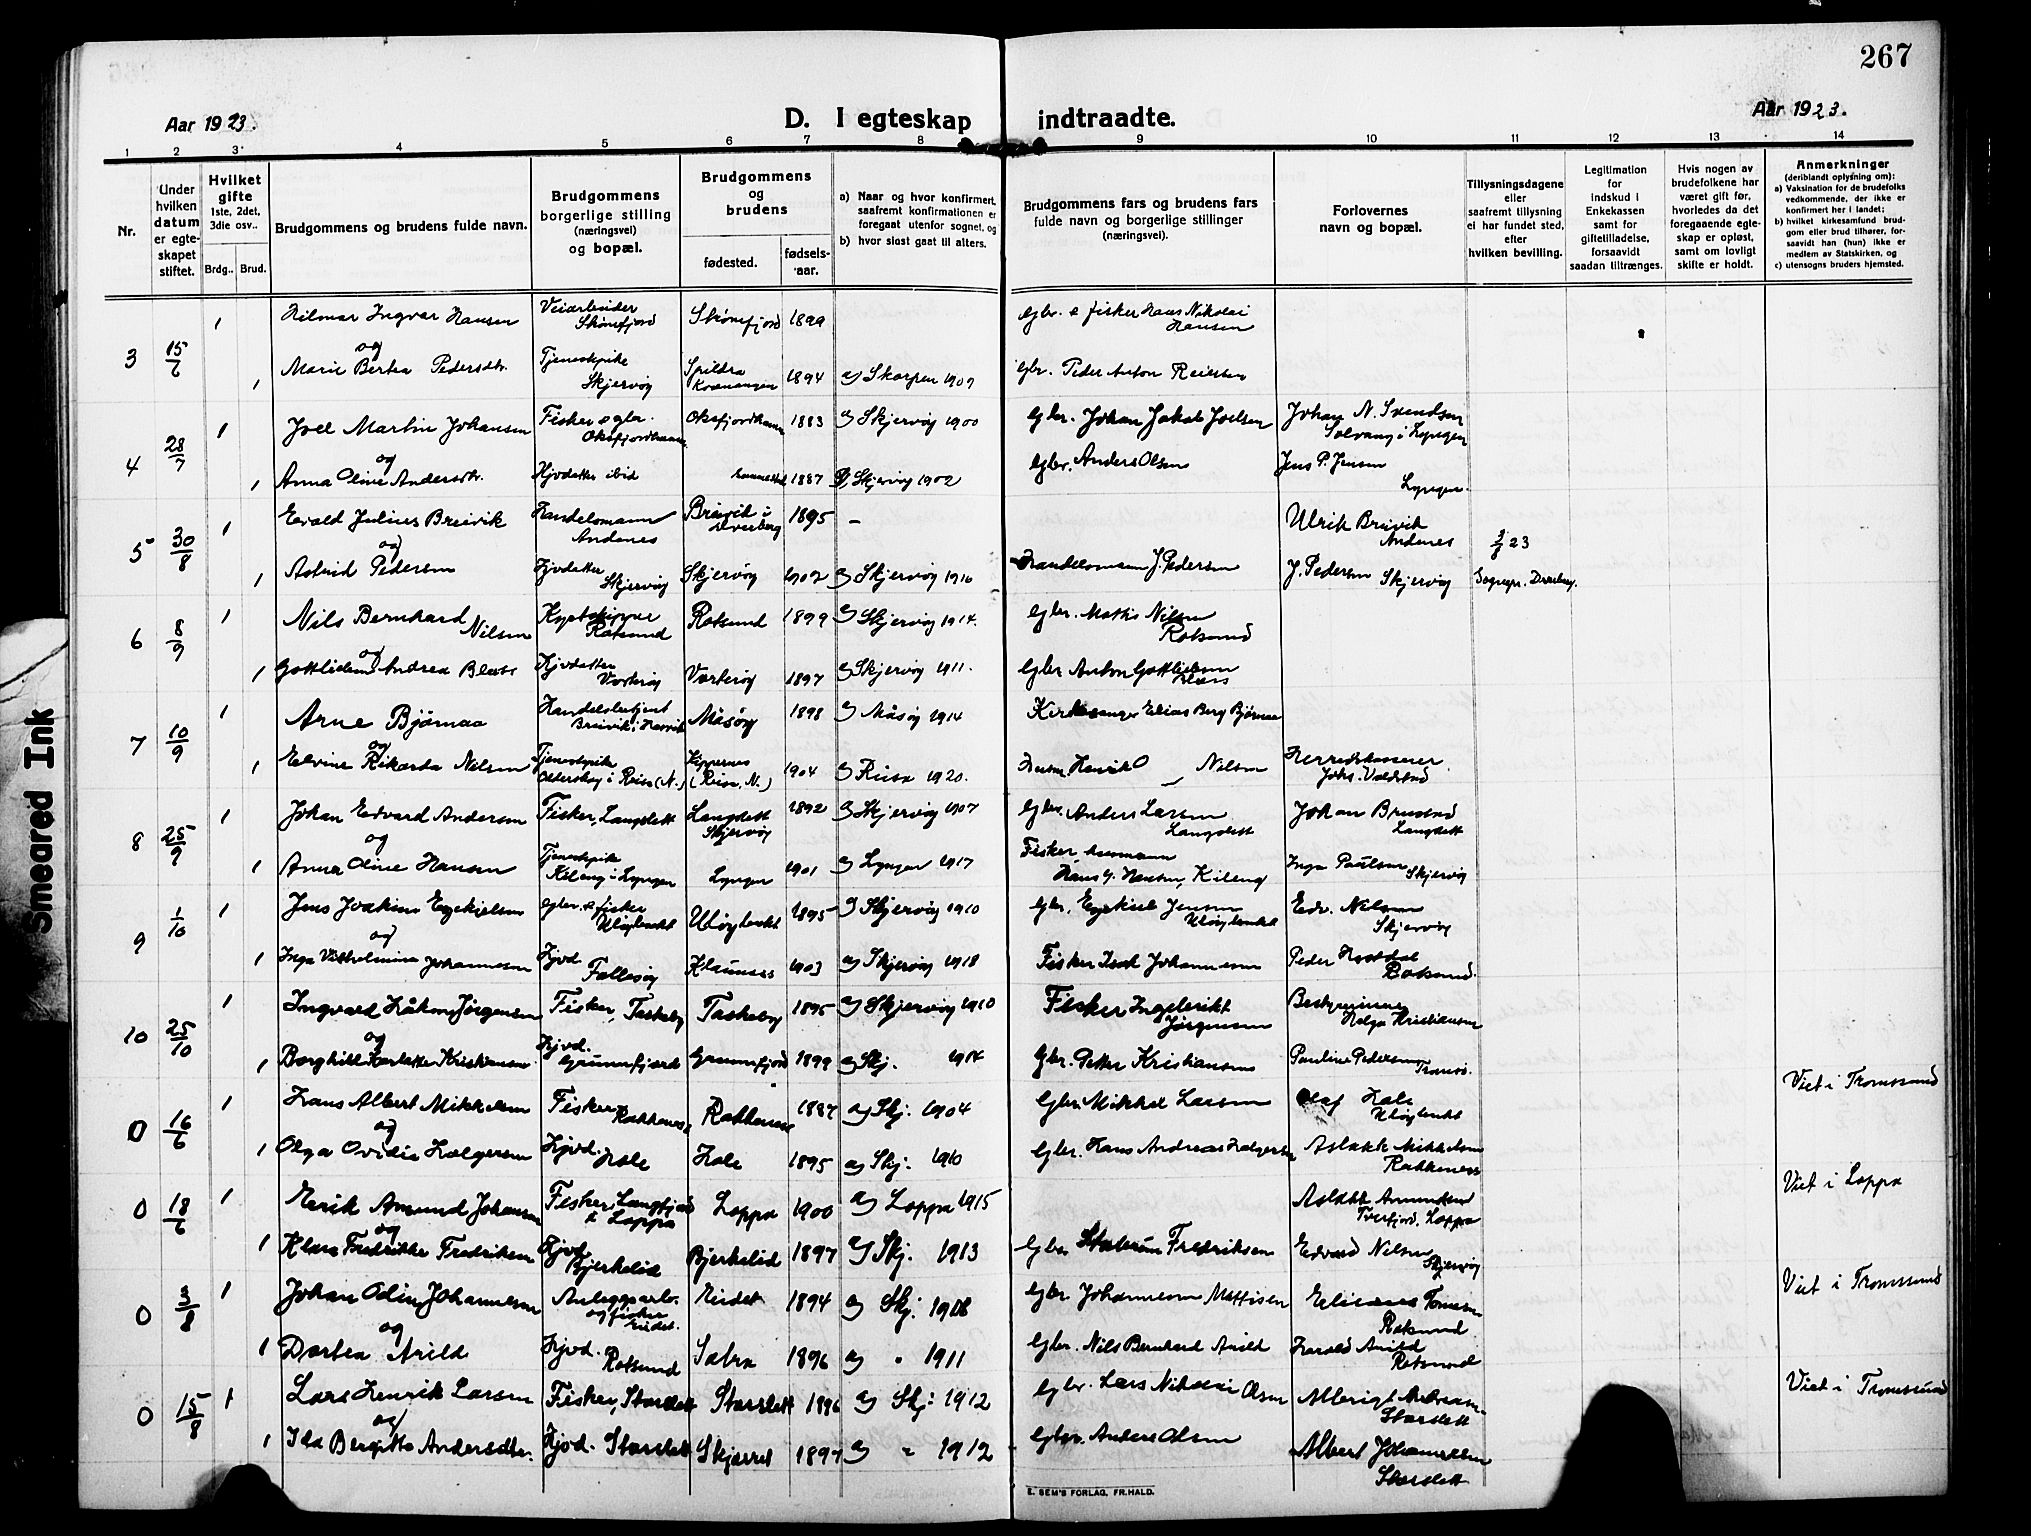 267
Aar 1923.
D. I egteskap indtraadte.
Aar 1923.
1 2 3 4 5 6 7 8 9 10 11 12 13 14
Nr.
Under hvilken datum er egteskapet stiftet.
Hvilket gifte
1ste, 2det, 3die osv..
Brdg.. Brud.
Brudgommens og brudens fulde navn.
Brudgommens borgerlige stilling (næringsvei) og bopæl.
Brudgommens og brudens
fødested.
fødsels-aar.
a) Naar og hvor konfirmert, saafremt konfirmationen er foregaat utenfor sognet, og
b) hvor sidst gaat til alters.
Brudgommens fars og brudens fars fulde navn og borgerlige stillinger (næringsvei).
Forlovernes navn og bopæl.
Tillysningsdagene eller saafremt tillysning ei har fundet sted, efter hvilken bevilling.
Legitimation for indskud i Enkekassen samt for giftetilladelse, forsaavidt saadan tiltrænges.
Hvis nogen av brudefolkene har været gift før, hvorledes da det foregaaende egteskap er opløst, samt om lovligt skifte er holdt.
Anmerkninger
(deriblandt oplysning om):
a) Vaksination for de brudefolks vedkommende, der ikke er konfirmert her i landet;
b) hvilket kirkesamfund brudgom eller brud tilhører, forsaavidt han (hun) ikke er medlem av Statskirken, og
c) utensogns bruders hjemsted.
3 15/6 1 Hilmar Ingvar Hansen Veiarbeider Skønnfjord 1899 Gbr. & fisker Hans Nikolai Hansen
og
1 Marie Bertea Pedersdtr. Tjenestepike Skjervøy Spildra Kvænangen 1894 a) Skorpen 1909 Gbr. Peder Anton Reiersen
4 28/7 1 Joel Martin Johansen Fisker & gbr. Oksfjordhamn Oksfjordhamn 1883 a) Skjervøy 1900 Gbr. Johan Jakob Joelsen Johan N. Svendsen Solvang i Lyngen
og
1 Anna Oline Andersdtr. Hjvdatter ibid 1887 a) Skjervøy 1902 Gbr. Anders Olsen Jens P. Jensen Lyngen
5 30/8 1 Evald Julius Breivik Handelsmann Andenes Breivik i Dverberg 1895 – Ulrik Breivik Andenes 23
og
1 Astrid Pedersen Hjvdatter Skjervøy Skjervøy 1902 a) Skjervøy 1916 Handelsmann J. Pedersen J. Pedersen Skjervøy Sognepr. Dverberg.
6 8/9 1 Nils Bernhard Nilsen Rotsund Rotsund 1899 a) Skjervøy 1914. Gbr. Mathis Nilsen Rotsund
og
1 Andrea Hjvdatter Vorterøy Vorterøy 1897 a) Skjervøy 1911. Gbr Anton Gottliebsen
7 10/9 1 Arne Bjørnaa Handelsbetjent Breivik i Hasvik Måsøy 1898 a) Måsøy 1914 Kirkesanger Elias Berg Bjørnaa
og
1 Elvine Rikarda Nilsen Tjenestepike i Reisa (N.) (Reisa, N.) 1904 a) Reisa 1920. Henrik Nilsen Herredskasserer Johs. Valdstad
8 25/9 1 Johan Edvard Andersen Fisker, Langslett Langslett Skjervøy 1892 a) Skjervøy 1907 Gbr. Anders Larsen Langslett Johan Brustad Langslett
og
1 Anna Oline Hansen Tjenestepike Kileng i Lyngen Lyngen 1901 a) Lyngen 1917 Fisker Hans G. Hansen, Kileng Inga Paulsen Skjervøy
9 1/10 1 Jens Joakim Ezekielsen Gbr. & fisker Uløybukt Uløybukt 1895 a) Skjervøy 1910 Gbr. Ezekiel Jensen Uløybukt Edv. Nilsen Skjervøy
og
1 Inga Vilhelmina Johannesen Hjvd. Follesøy Klauvnes 1903 a) Skjervøy 1918 Fisker Isak Johannesen Peder Rotsund.
10 25/10 1 Ingvald Håkon Jørgensen Fisker, Taskeby Taskeby 1895 a) Skjervøy 1910 Fisker Ingebrikt Jørgensen Bestyrerinne Helga Kristiansen
og
1 Borghild Kristiansen Hjvd. Grunnfjord Grunnfjord 1899 a) Skj. 1914 Gbr. Petter Kristiansen Pauline Pedersen Tromsø.
0 16/6 1 Hans Albert Mikkelsen Fisker, Rakkenes Rakkenes 1887 a) Skj. 1904 Gbr. Mikkel Larsen Olaf Hole Uløybukt Viet i Tromssund
og
1 Olga Ovidia Holgersen Hjvd. Hole Hole 1895 a) Skj. 1910 Gbr. Hans Andreas Holgersen Aslakk Mikkelsen Rakkenes
0 18/6 1 Erik Amund Johansen Fisker, Langfjord i Loppa Loppa 1900 a) Loppa 1915 Aslakk Amundsen Tverfjord, Loppa Viet i Loppa
og
1 Klara Fredrikke Fredriksen Hjvd Bjerkelid Bjerkelid 1897 a) Skj. 1913 Gbr. Fredriksen Edvard Nilsen Skjervøy
0 3/8 1 Johan Odin Johannesen Anleggsarb. og fisker Eidet. Eidet 1894 a) Skj. 1908 Gbr Johannesen Mattisen Rotsund. Viet i Tromssund
og
1 Dortea Arild Hjvd. Rotsund 1896 a) " 1911 Gbr. Nils Bernhard Arild Harald Arild Rotsund
0 15/8 1 Lars Henrik Larsen Fisker, Storslett Storslett 1896 a) Skj. 1912 Gbr. Lars Nikolai Olsen Albrigt Andreasen Storslett Viet i Tromssund
og
1 Ida Bergitte Andersdtr. Hjvd. Storslett 1897 a) " 1912 Gbr. Anders Olsen Albert Johannessen Storslett
E. SEM'S FORLAG, FR.HALD.
Smeared Ink